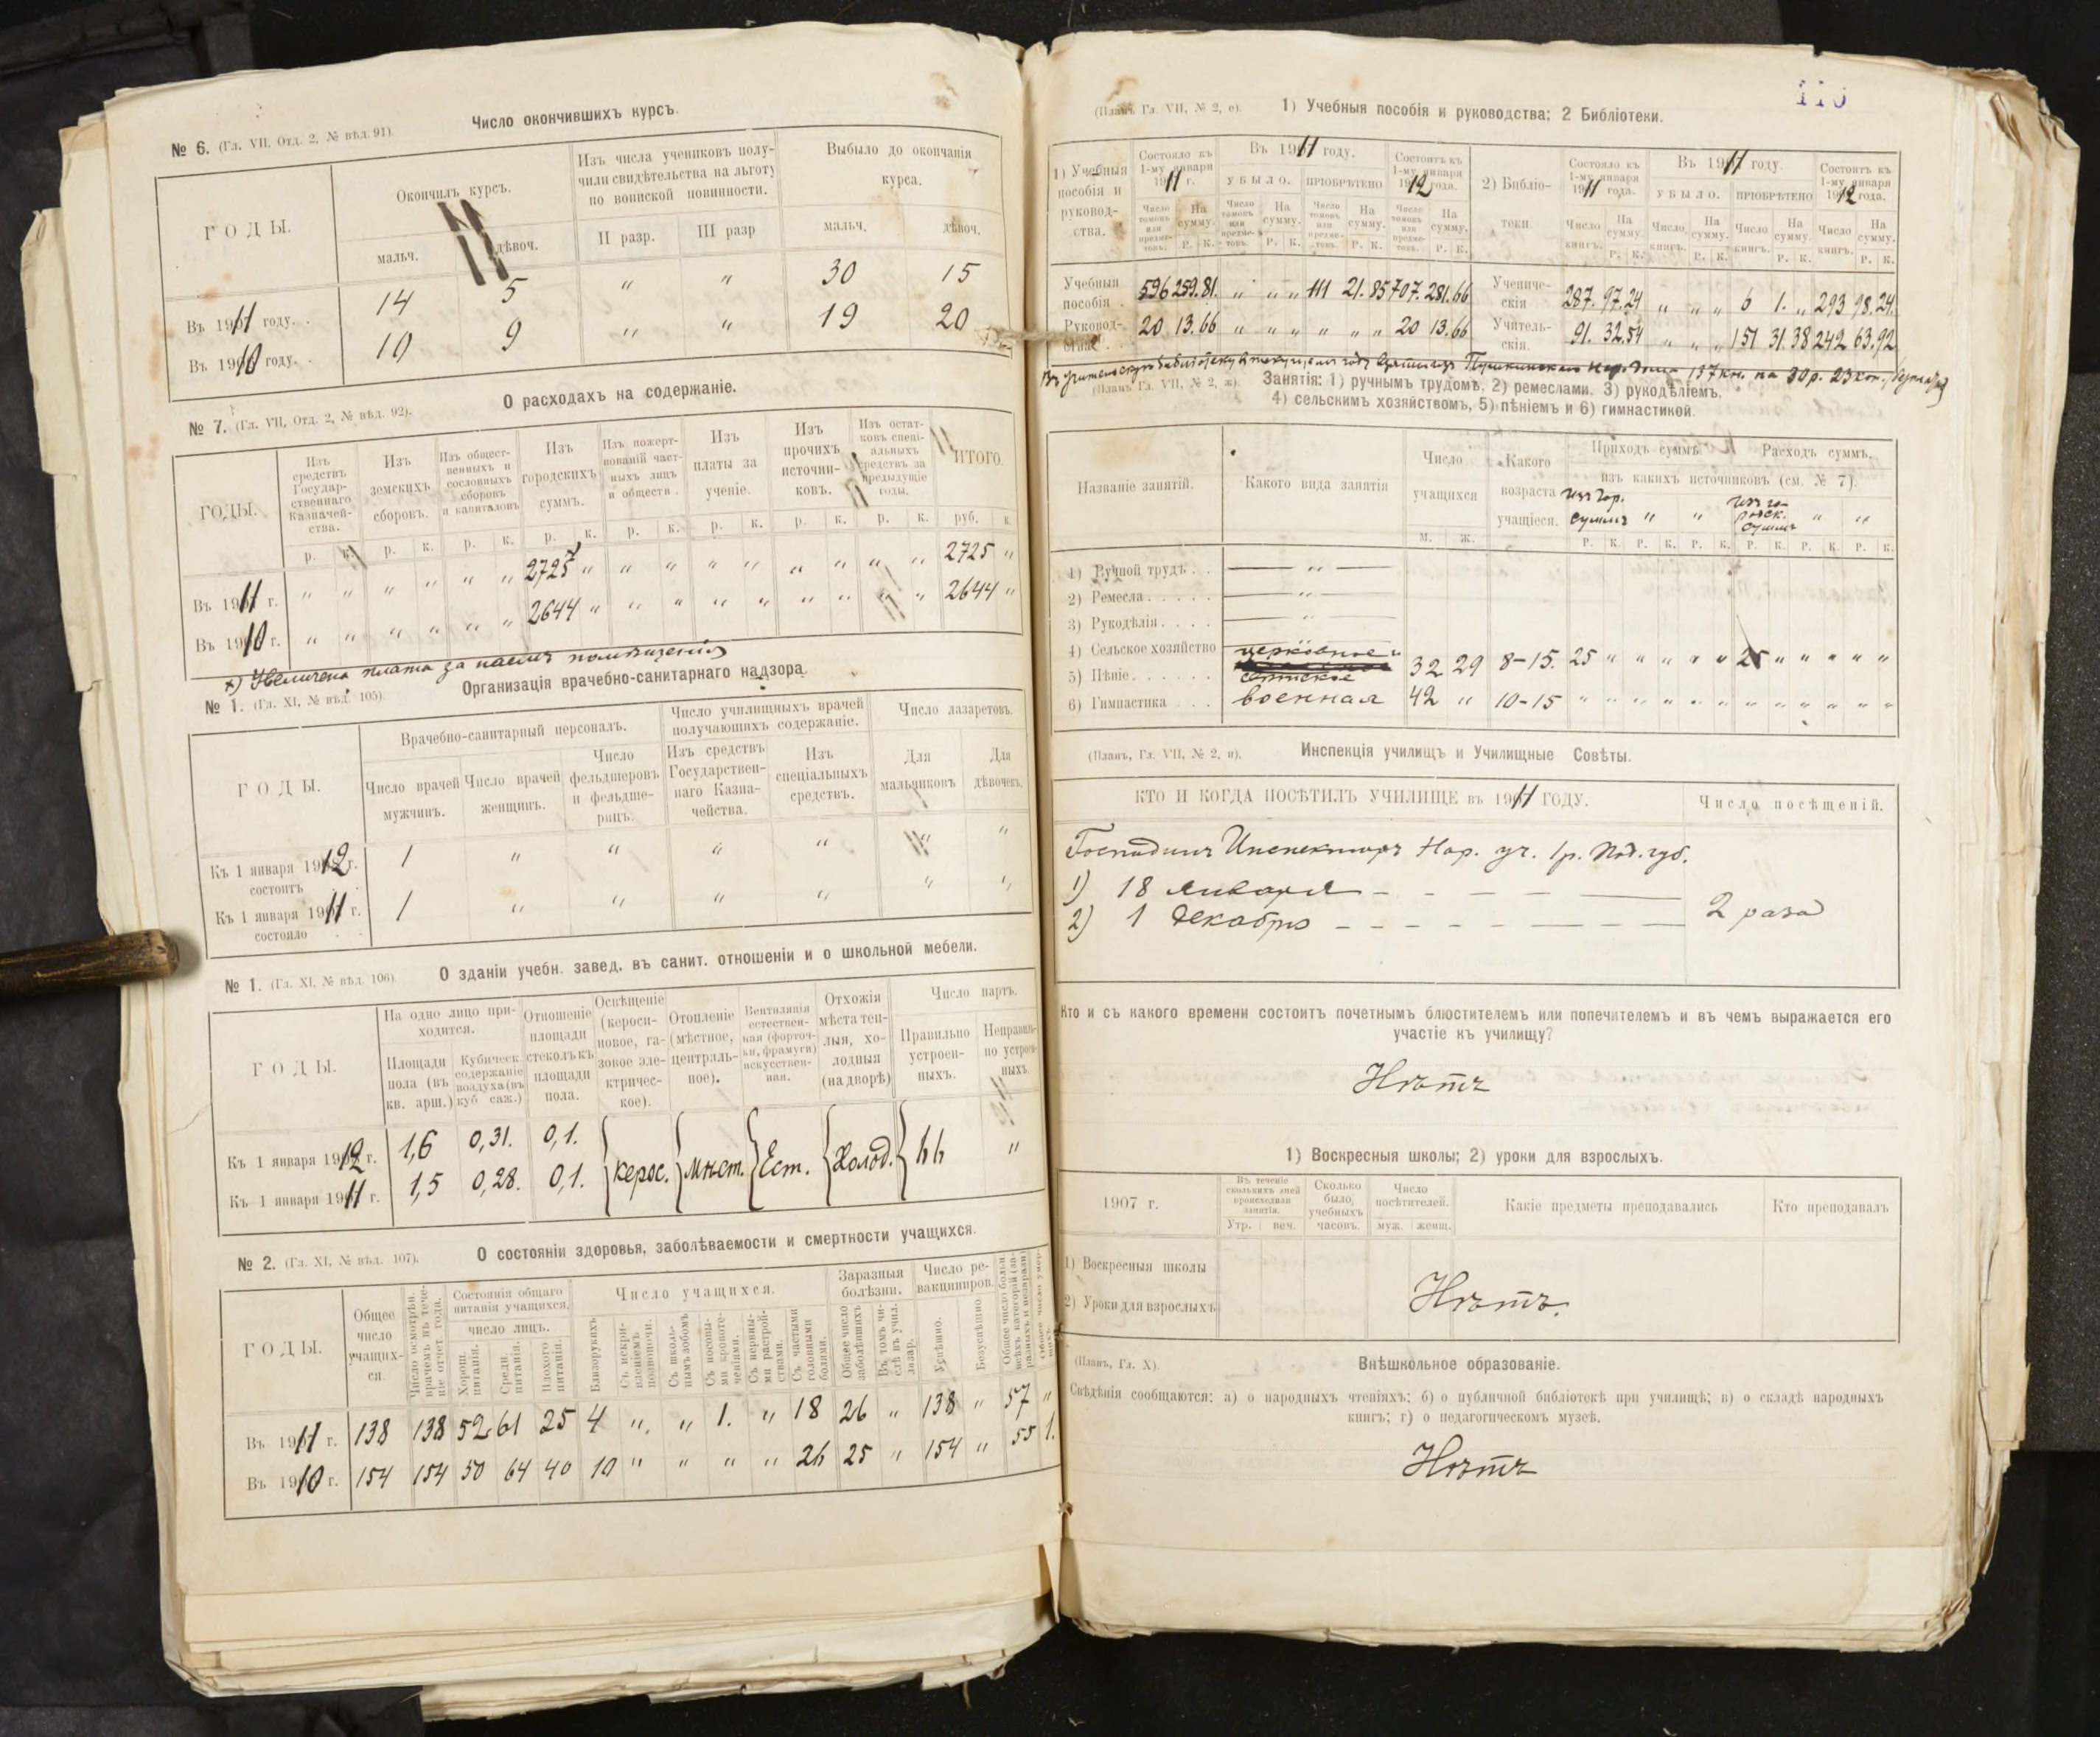 Число окончившихъ курсъ.
№ 6. (Гл. VII. Отд. 2, № вѣд. 91).
ГОДЫ.
Окончилъ курсъ.
Изъ числа учениковъ полу-
чили свидѣтельства на льготу
по воинской повинности.
Выбыло до окончанія
курса.
мальч. дѣвоч. II разр. III разр мальч. дѣвоч.
Въ 1911 году. 14 5 " " 30 15
Въ 1910 году. 10 9 " " 19 20
О расходахъ на содержаніе.
№ 7. (Гл. VII, Отд. 2, № вѣд. 92).
ГОДЫ.
Изъ средствъ Государ-ственнаго Казначей-ства.
Изъ земскихъ сборовъ.
Изъ общест-венныхъ и сословныхъ сборовъ и капиталовъ
Изъ городскихъ суммъ.
Изъ пожерт-вованій част-ныхъ лицъ и обществ.
Изъ платы за ученіе.
Изъ прочихъ источни-ковъ.
Изъ остат-ковъ спеці-альныхъ средствъ за предыдущіе годы.
ИТОГО.
р. к. р. к. р. к. р. к. р. к. р. к. р. к. р. к. руб. к.
Въ 1911 г. " " " " " " 2725 " " " " " " " " " 2725 "
Въ 1910 г. " " " " " " 2644 " " " " " " " " " 2644 "
х) Увеличена плата за наемъ помѣщенія
Организація врачебно-санитарнаго надзора.
№ 1. (Гл. XI, № вѣд. 105).
ГОДЫ.
Врачебно-санитарный персоналъ.
Число училищныхъ врачей
получающихъ содержаніе.
Число лазаретовъ.
Число врачей мужчинъ.
Число врачей женщинъ.
Число фельдшеровъ и фельдше-рицъ.
Изъ средствъ Государствен-наго Казна-чейства.
Изъ спеціальныхъ средствъ.
Для мальчиковъ
Для дѣвочекъ.
Къ 1 января 1912 г. состоитъ 1 " " " " " "
Къ 1 января 1911 г. состояло 1 " " " " " "
О зданіи учебн. завед. въ санит. отношеніи и о школьной мебели.
№ 1. (Гл. XI, № вѣд. 106).
ГОДЫ.
На одно лицо при-ходится.
Площади пола (въ кв. арш.)
Кубическ. содержаніе воздуха (въ куб саж.)
Отношеніе площади стеколъ къ площади пола.
Освѣщеніе (кероси-новое, га-зовое эле-ктричес-кое).
Отопленіе (мѣстное, централь-ное).
Вентиляція естествен-ная (форточ-ки, фрамуги) искусствен-ная.
Отхожія мѣста теп-лыя, хо-лодныя (на дворѣ)
Число партъ.
Правильно устроен-ныхъ.
Неправиль-но устроен-ныхъ.
Къ 1 января 1912 г. 1,6 0,31. 0,1.
Къ 1 января 1911 г. 1,5 0,28. 0,1.
керос. мѣст. Ест. Холод. "
О состояніи здоровья, заболѣваемости и смертности учащихся.
№ 2. (Гл. XI, № вѣд. 107).
ГОДЫ.
Общее число учащих-ся.
Число осмотрѣн. врачемъ въ тече-ніе отчет. года.
Состоянія общаго питанія учащихся.
число лицъ.
Хорош. питанія.
Средн. питанія.
Плохого питанія.
Число учащихся.
Близорукихъ
Съ искри-вленіемъ позвоночн.
Съ школь-нымъ зобомъ
Съ носовы-ми кровоте-ченіями.
Съ нервны-ми растрой-ствами.
Съ частыми головными болями.
Заразныя болѣзни.
Общее число заболѣвшихъ
Въ томъ чи-слѣ въ учил. лазар.
Число ре-вакциниров.
Успѣшно.
Безуспѣшно.
Въ 1911 г. 138 138 52 61 25 4 " " 1. " 18 26 " 138 " 57 "
Въ 1910 г. 154 154 50 64 40 10 " " " " 26 25 " 154 " 55 1.
(Планъ, Гл. VII, № 2, е). 1) Учебныя пособія и руководства; 2 Библіотеки.
1) Учебныя пособія и руковод-ства.
Состояло къ 1-му января 1911 г.
Въ 1911 году.
УБЫЛО. ПРІОБРѢТЕНО
Состоитъ къ 1-му января 1912 года.
2) Библіо-теки.
Состояло къ 1-му января 1911 года.
Въ 1911 году.
УБЫЛО. ПРІОБРѢТЕНО
Состоитъ къ 1-му января 1912 года.
Учебныя пособія 596 259.81. " " " 111 21.85 707. 281.66 Учениче-скія 287. 97.24 " " " 6 1. " 293 98.24.
Руковод-ства 20 13.66 " " " " " " 20 13.66 Учитель-скія. 91. 32.54 " " " 151 31.38 242 63.92
Въ учительскую библіотеку въ текущемъ году 137 кн. на 30 р. 23 коп.
(Планъ Гл. VII, № 2, ж). Занятія: 1) ручнымъ трудомъ, 2) ремеслами. 3) рукодѣліемъ.
4) сельскимъ хозяйствомъ, 5) пѣніемъ и 6) гимнастикой.
Названіе занятій.
Какого вида занятія
Число учащихся
м. ж.
Какого возраста учащіеся.
Приходъ суммъ. Расходъ суммъ.
изъ какихъ источниковъ (см. № 7).
Изъ гор. суммъ " " Изъ го-родск. суммъ " "
Р. К. Р. К. Р. К. Р. К. Р. К. Р. К.
1) Ручной трудъ . . — " —
2) Ремесла . . . . . — " —
3) Рукодѣлія . . . . — " —
4) Сельское хозяйство
5) Пѣніе . . . . . . церковное и свѣтское 32 29 8-15. 25 " " " " " 25 " " " " "
6) Гимнастика . . . военная 42 " 10-15 " " " " " " " " " " " "
(Планъ, Гл. VII, № 2, и). Инспекція училищъ и Училищные Совѣты.
КТО И КОГДА ПОСѢТИЛЪ УЧИЛИЩЕ въ 1911 ГОДУ. Число посѣщеній.
Господинъ Инспекторъ Нар. уч. 1 р. Под. губ.
1) 18 января
2) 1 декабря 2 раза
Кто и съ какого времени состоитъ почетнымъ блюстителемъ или попечителемъ и въ чемъ выражается его
участіе къ училищу?
Нѣтъ
1) Воскресныя школы; 2) уроки для взрослыхъ.
1907 г.
Въ теченіе сколькихъ дней происходили занятія.
Утр. веч.
Сколько было учебныхъ часовъ.
Число посѣтителей.
муж. женщ.
Какіе предметы преподавались
Кто преподавалъ
1) Воскресныя школы
2) Уроки для взрослыхъ
Нѣтъ.
(Планъ, Гл. X). Внѣшкольное образованіе.
Свѣдѣнія сообщаются: а) о народныхъ чтеніяхъ; б) о публичной библіотекѣ при училищѣ; в) о складѣ народныхъ
книгъ; г) о педагогическомъ музеѣ.
Нѣтъ